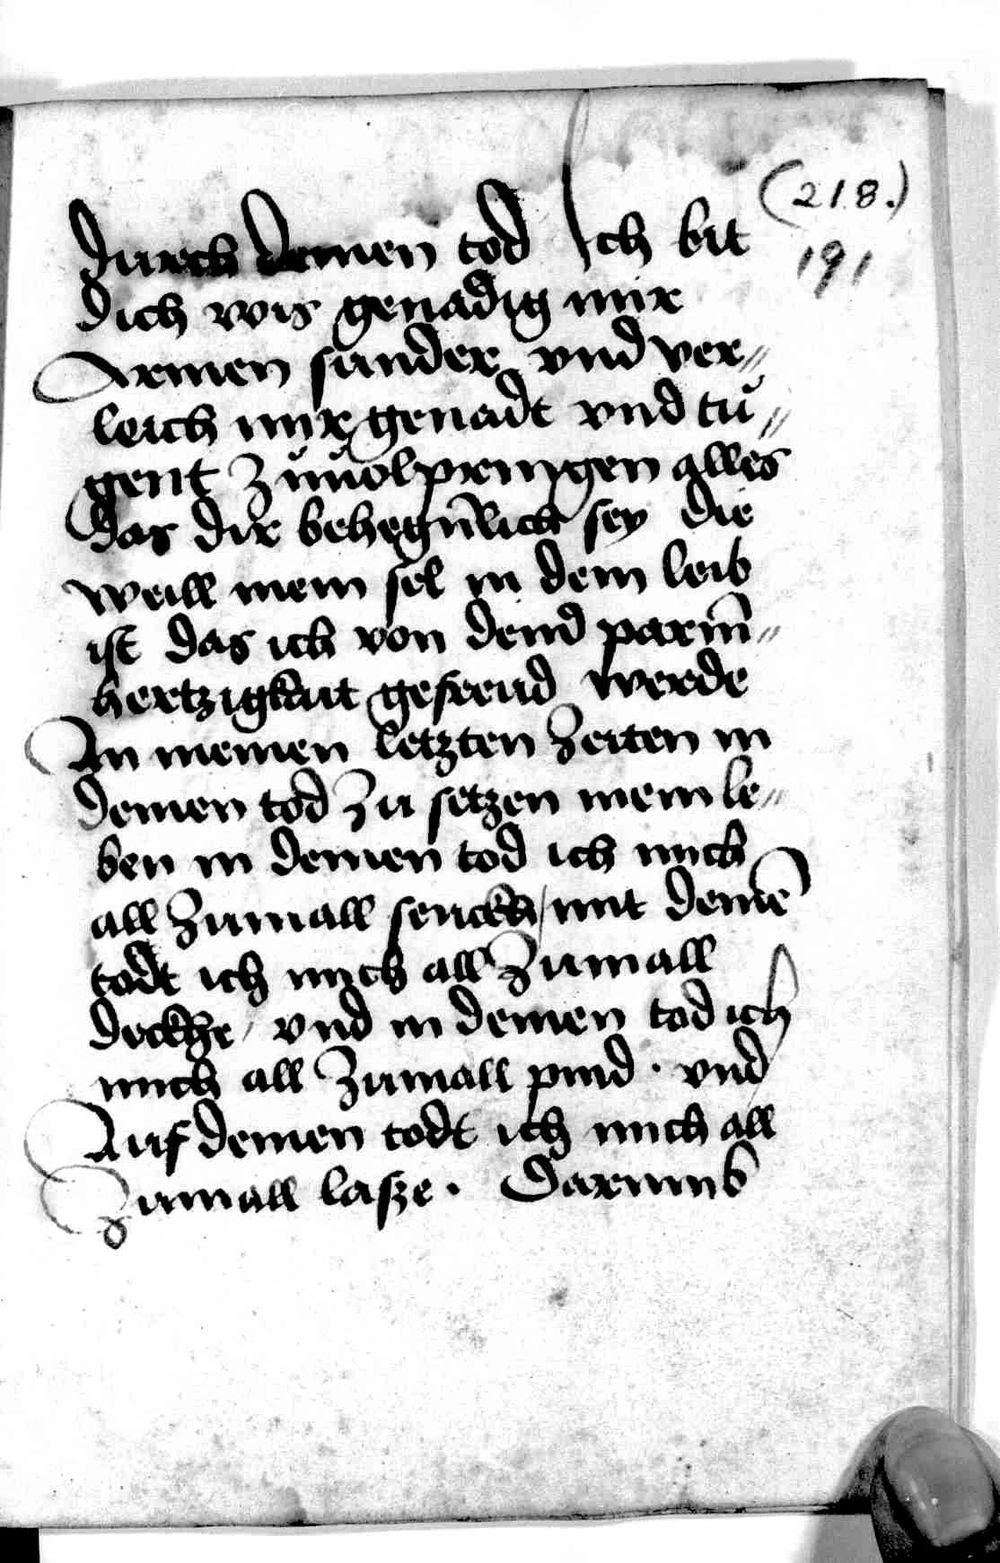 (218.)
191
durch deinen tod Ich bit
dich wis genadig mir
Armen sunder vnd ver〃
leich mir genadt vnd tu᷎〃
gent Zuuolpringen alles
das dir behegn̄lich sey die
Weill mein sel in dem leib
ist das ich von deind parm̄〃
hertzigkait gefreud werde
In meinen letzten Zeiten in
deinen tod Zu setzen mein le〃
ben in deinen tod ich mich
all Zumall senckh/ mit deinē
todt ich mich all Zumall
deckhe / vnd in deinen tod ich
mich all Zumall pind · vnd
Auf deinen todt ich mich all
Zumall lasze · Darumb